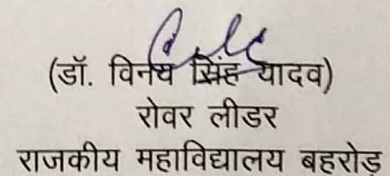 (डॉ. विनय सिंह यादव)
रोवर लीडर
राजकीय महाविद्यालय बहरोड़